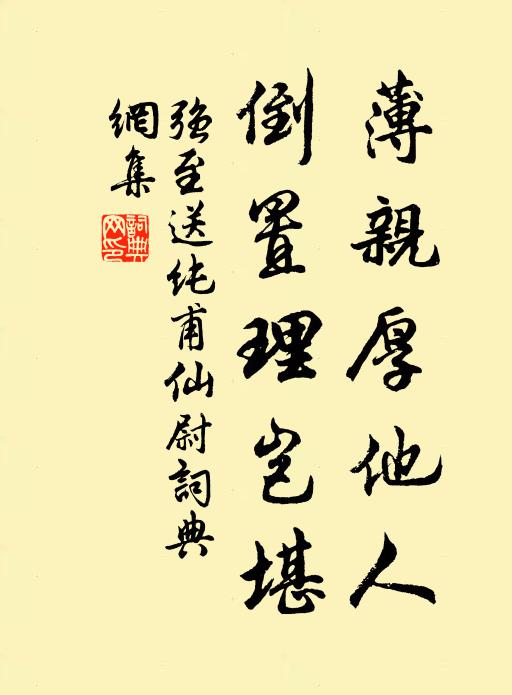 薄親厚他人
倒置理豈堪
強至送纯甫仙尉詞典
網集
詞典
网印